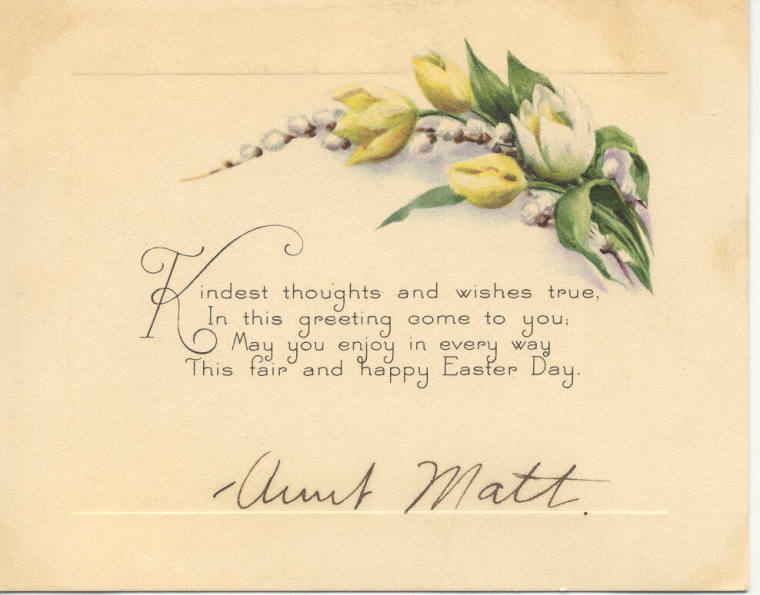 Kindest thoughts and wishes true,
In this greeting come to you;
May you enjoy in every way
This fair and happy Easter Day.
-Aunt Matt.